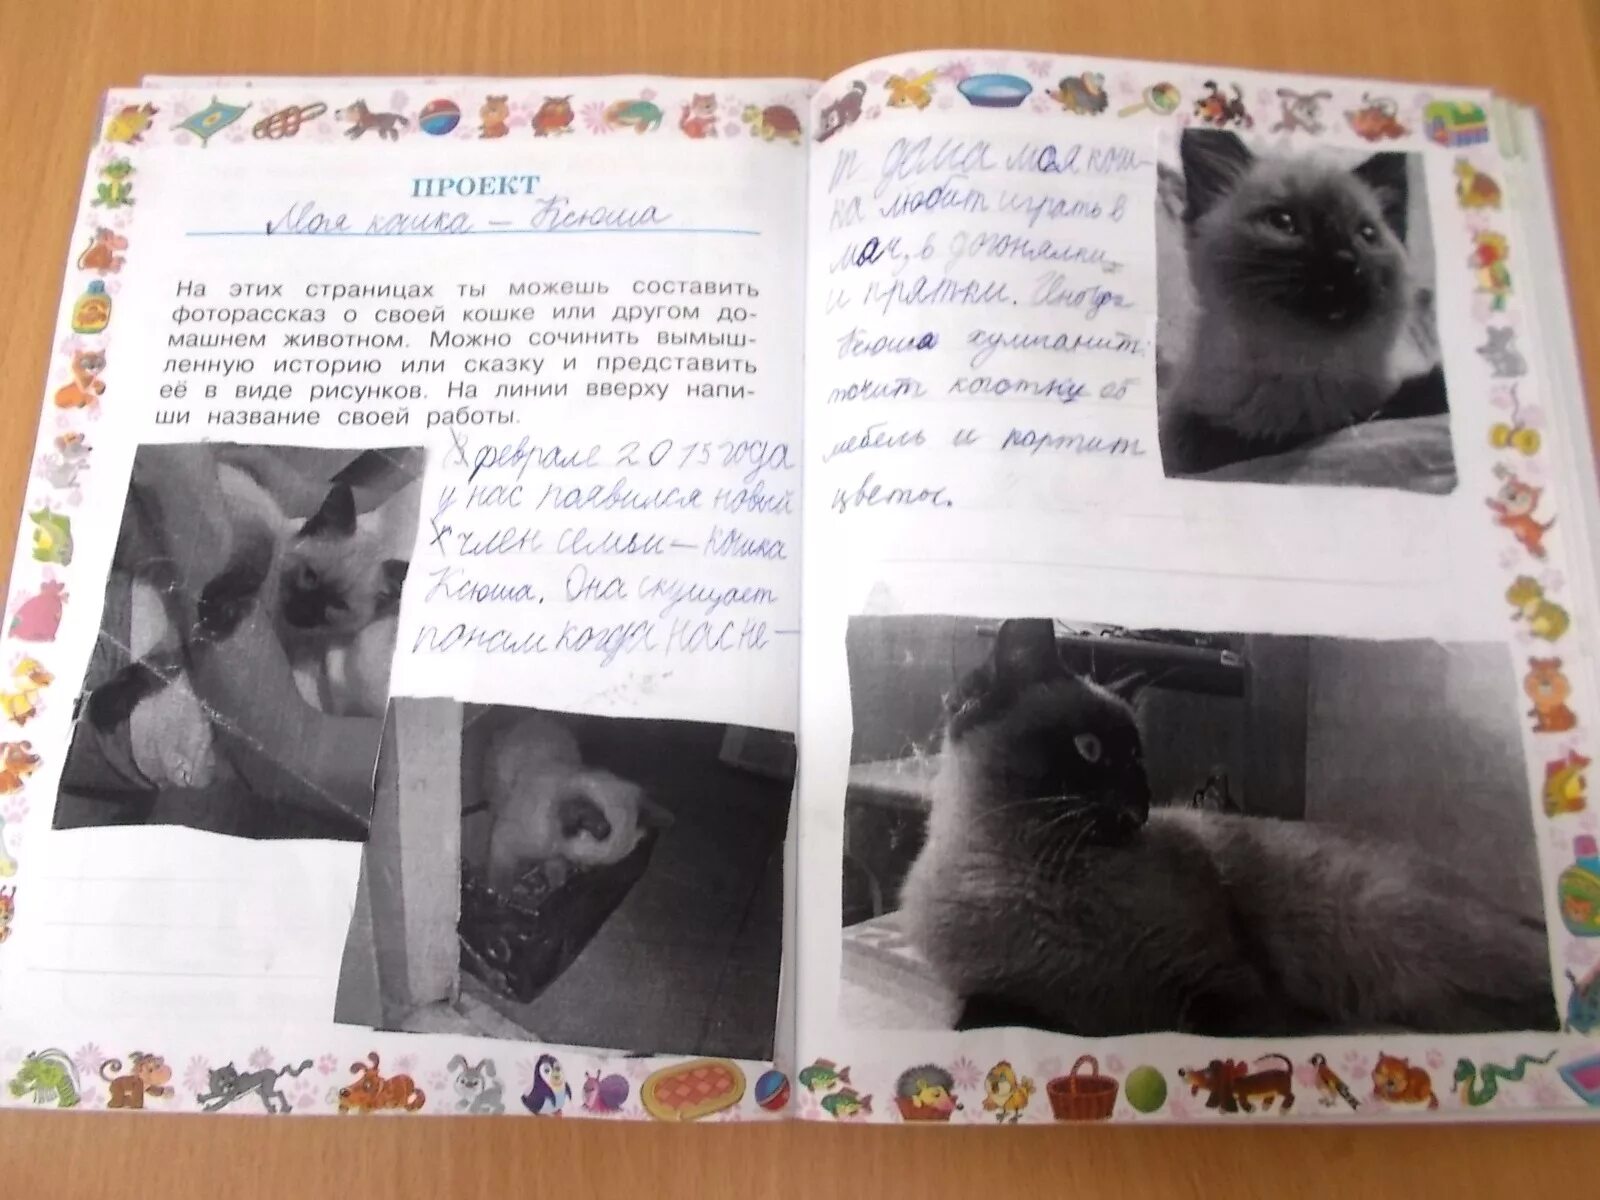 ПРОЕКТ
Моя кошка – Ксюша
На этих страницах ты можешь составить
фоторассказ о своей кошке или другом до-
машнем животном. Можно сочинить вымыш-
ленную историю или сказку и представить
её в виде рисунков. На линии вверху напи-
ши название своей работы.
В феврале 2015 года
у нас появился новый
член семьи – кошка
Ксюша. Она скущает
по нам когда нас не-
т дома моя кош-
ка любит играть в
мяч, в догонялки
и прятки. Иногда
Ксюша хулиганит:
точит коготки об
мебель и портит
цветы.